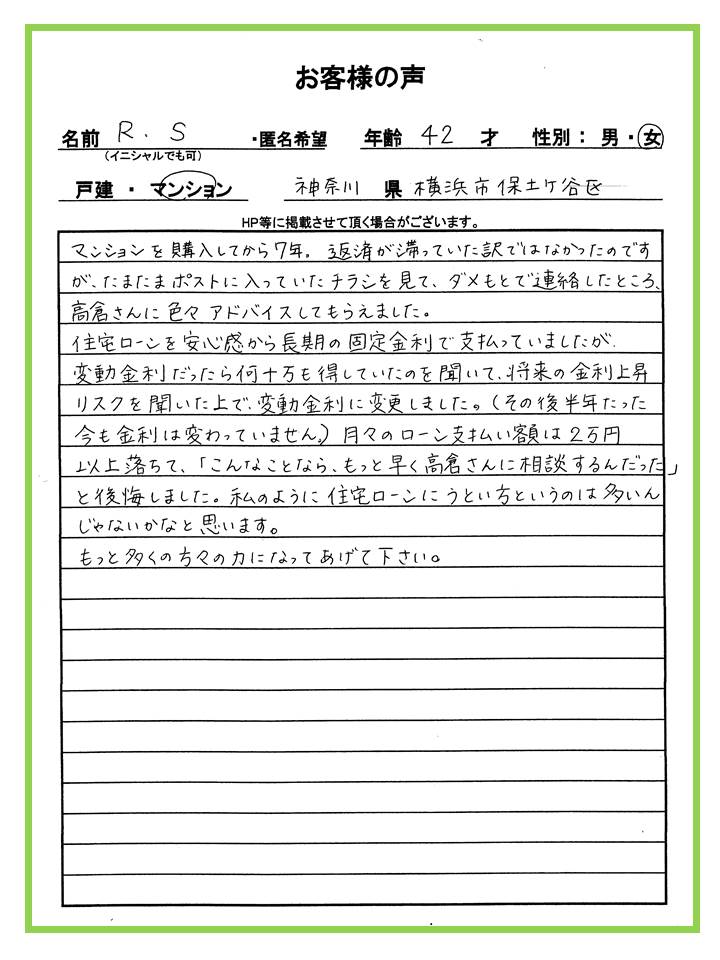 お客様の声
名前 R.S ・匿名希望 年齢 42 才 性別: 男・女
(イニシャルでも可)
戸建 ・ マンション 神奈川 県 横浜市保土ケ谷区
HP等に掲載させて頂く場合がございます。
マンションを購入してから7年。返済が滞っていた訳ではなかったのです
が、たまたまポストに入っていたチラシを見て、ダメもとで連絡したところ、
高倉さんに色々アドバイスしてもらえました。
住宅ローンを安心感から長期の固定金利で支払っていましたが、
変動金利だったら何十万も得していたのを聞いて、将来の金利上昇
リスクを聞いた上で、変動金利に変更しました。(その後半年たった
今も金利は変わっていません。)月々のローン支払い額は2万円
以上落ちて、「こんなことなら、もっと早く高倉さんに相談するんだった」
と後悔しました。私のように住宅ローンにうとい方というのは多いん
じゃないかなと思います。
もっと多くの方々の力になってあげて下さい。